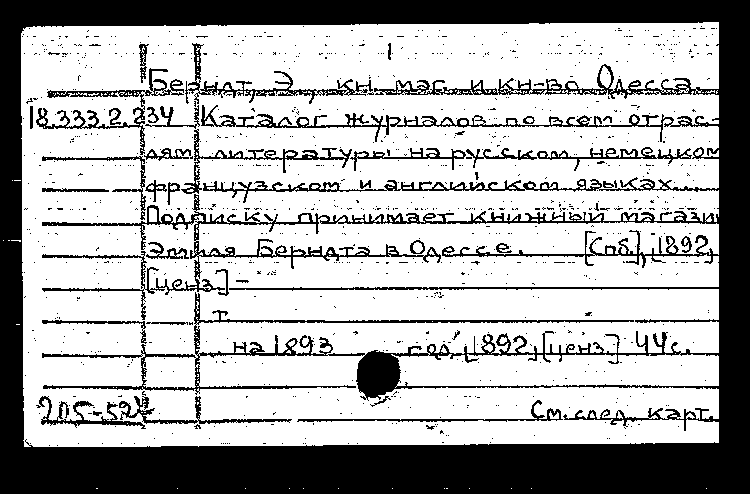 1
Берндт, Э., кн. маг. и кн-во Одесса.
18.333.2.234 Каталог журналов по всем отрас-
лям литературы на русском, немецком
французском и английском языках...
Подписку принимает книжный магази
Эмиля Берндта в Одессе. [Спб], [1892,
[ценз.] -
т.
на 1893 год, [1892, [ценз.] 44 с.
205-527
См. след. карт.